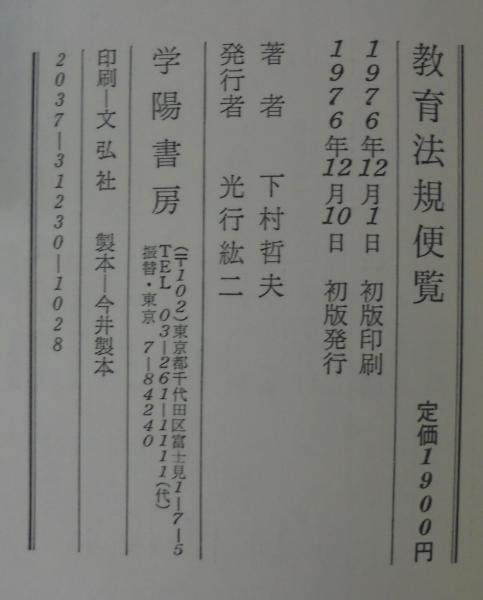 教育法規便覧 定価1900円
1976年12月1日 初版印刷
1976年12月10日 初版発行
著者 下村哲夫
発行者 光行紘二
学陽書房
(〒102)東京都千代田区富士見1—7—5
TEL 03—261—1111(代)
振替・東京 7—84240
印刷—文弘社 製本—今井製本
2037—31230—1028